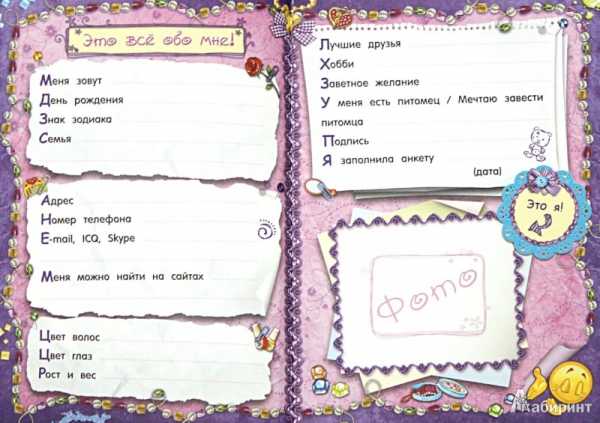 Это всё обо мне!
Меня зовут
День рождения
Знак зодиака
Семья
Адрес
Номер телефона
E-mail, ICQ, Skype
Меня можно найти на сайтах
Цвет волос
Цвет глаз
Рост и вес
Лучшие друзья
Хобби
Заветное желание
У меня есть питомец / Мечтаю завести
питомца
Подпись
Я заполнила анкету
(дата)
Это я!
Фото
Лабиринт